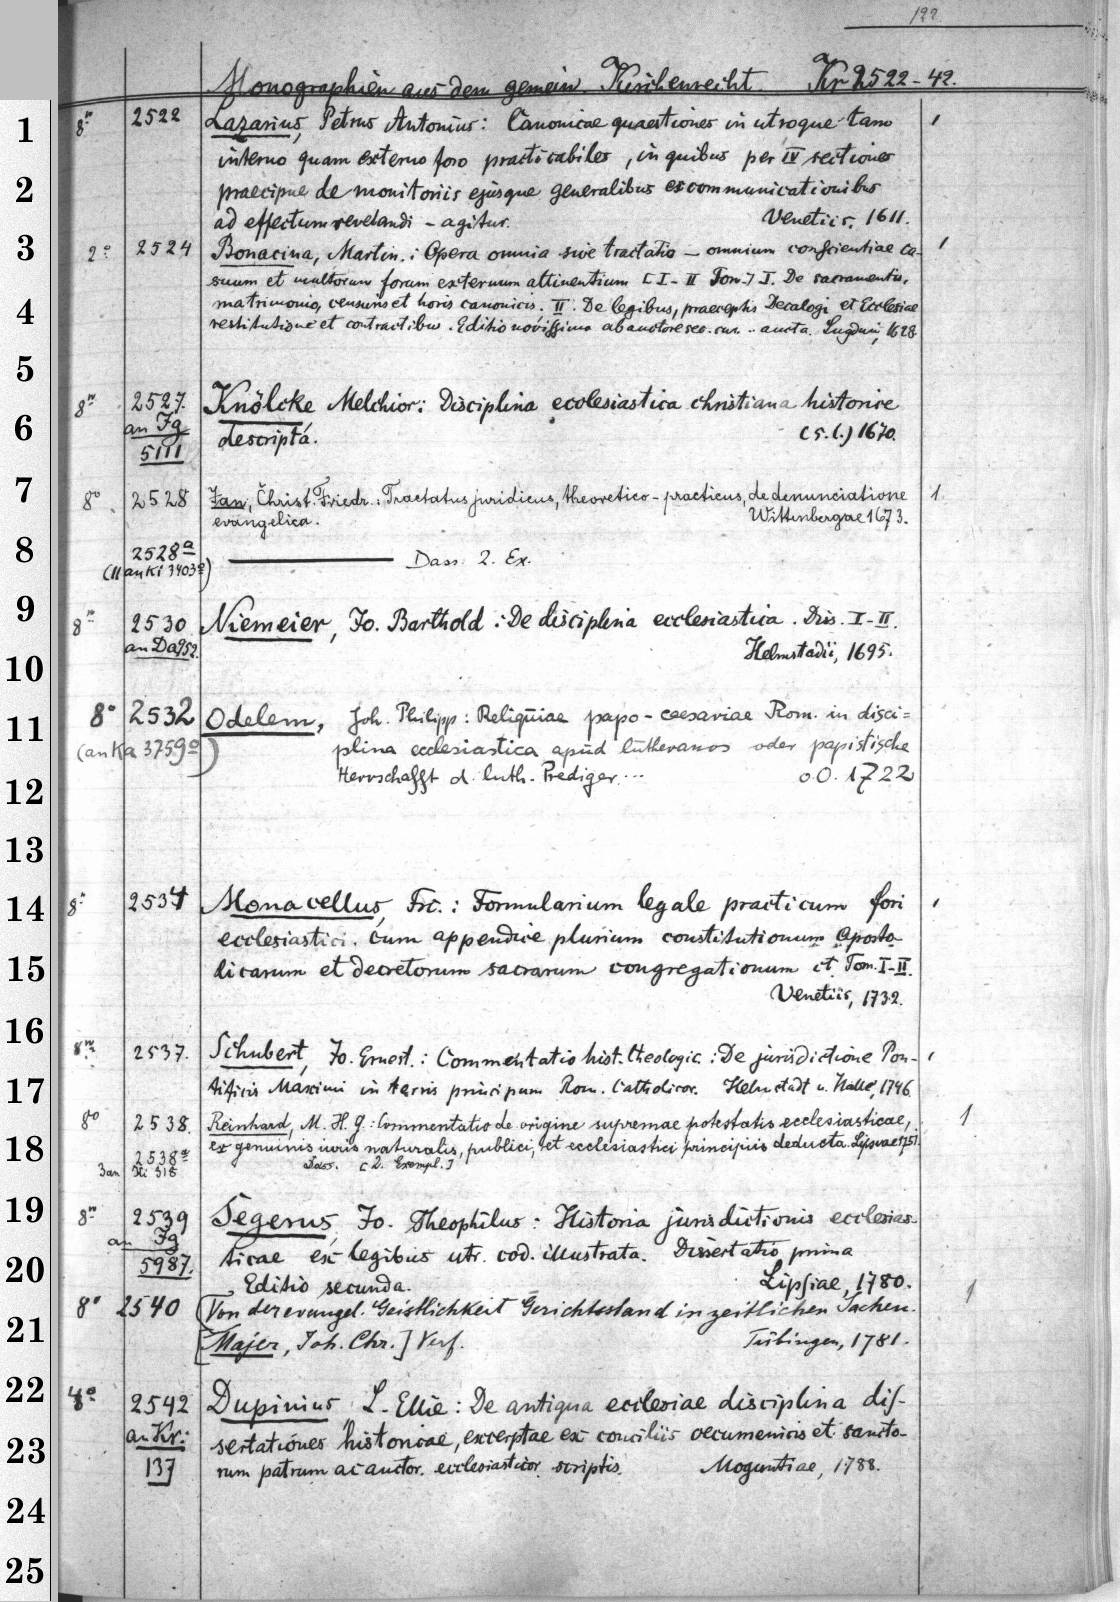 122
Monographien aus dem gemein. Kirchenrecht. Kr 2522-42.
8° 2522 Lazarius, Petrus Antonius: Canonicae quaestiones in utroque tam
interno quam externo foro practicabiles, in quibus per IV sectiones
praecipue de monitoriis ejusque generalibus excommunicationibus
ad effectum revelandi - agitur. Venetiis, 1611.
2° 2524 Bonacina, Martin.: Opera omnia sive tractatio - omnium conscientiae ca-
suum et multorum forum externum attinentium [I-II Tom.] I. De sacramentis,
matrimonio, censuris et horis canonicis. II. De legibus, praeceptis Decalogi et Ecclesiae
restitutione et contractibus. Editio novissima ab auctore rec. .. aucta. Lugduni, 1628
8° 2527. Knölcke Melchior: Disciplina ecclesiastica christiana historice
an Fg descripta. (s.l.) 1670.
5111
8° 2528 Jan, Christ. Friedr.: Tractatus juridicus, theoretico-practicus, de denunciatione 1
evangelica. Wittenbergae 1673.
2528a ——— Dass. 2. Ex.
(11 an Ki 3403a)
8° 2530 Niemeier, Jo. Barthold: De disciplina ecclesiastica. Dis. I-II.
an Da 952. Helmstadii, 1695.
8° 2532 Odelem, Joh. Philipp: Reliquiae papo-caesariae Rom. in disci=
(an Ka 3759a) plina ecclesiastica apud lutheranos oder papistische
Herrschafft d. luth. Prediger... o.O. 1722
8° 2534 Monacellus, Frc.: Formularium legale practicum fori
ecclesiastici. cum appendice plurium constitutionum aposto-
licarum et decretorum sacrarum congregationum et. Tom. I-II.
Venetiis, 1732.
8° 2537. Schubert, Jo. Ernest.: Commentatio hist. theologic: De jurisdictione Pon-
tificis Maximi in terris principum Rom. Catholicor. Helmstadt u. Halle, 1746.
8° 2538. Reinhard, M. H. G.: Commentatio de origine supremae potestatis ecclesiasticae, 1
ex genuinis iuris naturalis, publici, et ecclesiastici principiis deducta. Lipsiae 1751.
2538a Dass. [2. Exempl.]
3 an Sti 318
8° 2539 Segerus, Jo. Theophilus: Historia jurisdictionis ecclesias-
an Fg ticae ex legibus utr. cod. illustrata. Dissertatio prima
5987. Editio secunda. Lipsiae, 1780.
8° 2540 Von der evangel. Geistlichkeit Gerichtsstand in zeitlichen Sachen. 1
[Majer, Joh. Chr.] Verf. Tübingen, 1781.
4° 2542 Dupinius, L. Ellie: De antiqua ecclesiae disciplina dis-
an Kr: sertationes historicae, excerptae ex conciliis oecumenicis et sancto-
137 rum patrum ac auctor. ecclesiasticor. scriptis. Moguntiae, 1788.
1
2
3
4
5
6
7
8
9
10
11
12
13
14
15
16
17
18
19
20
21
22
23
24
25